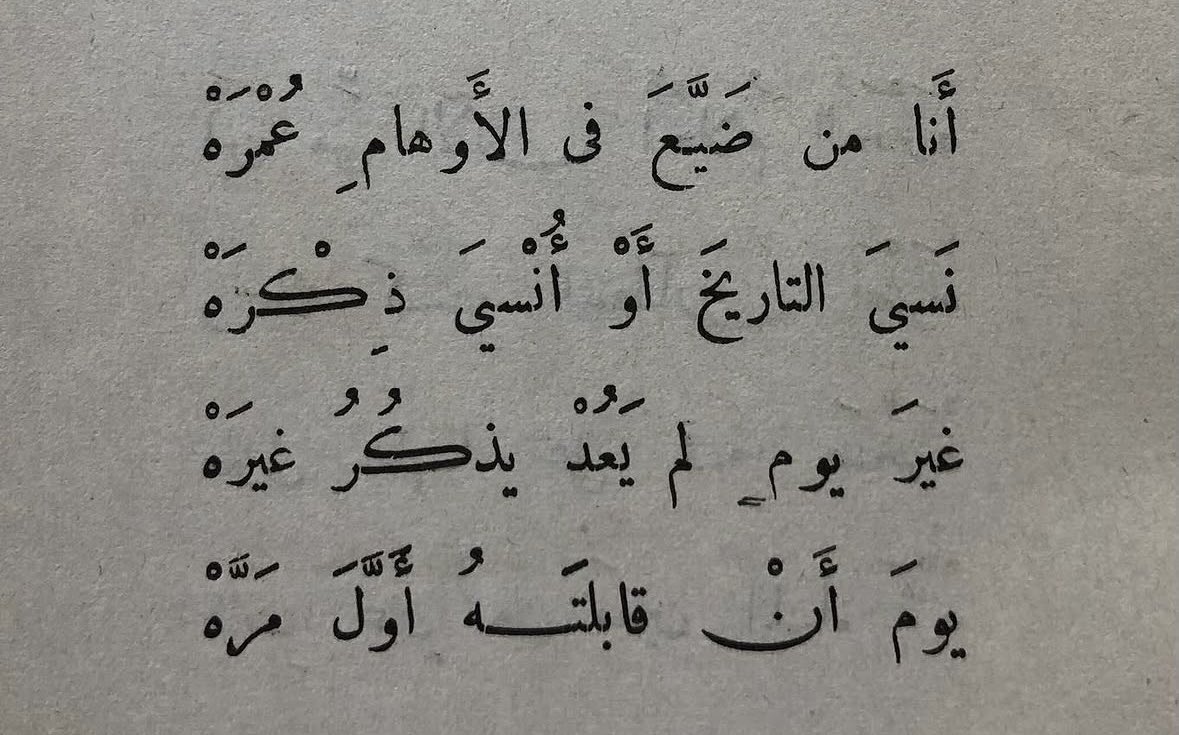 أَنا من ضَيَّعَ فى الأَوهامِ عُمْرَهْ
نَسيَ التاريخَ أَوْ أُنْسيَ ذِكْرَهْ
غيرَ يومٍ لم يَعُدْ يذكُرُ غيرَهْ
يومَ أَنْ قابلتَـهُ أَوَّلَ مَرَّهْ